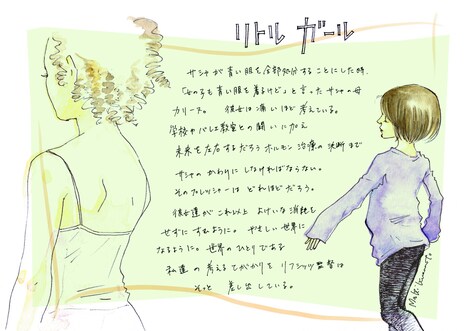 リトル ガール
サシャが青い服を全部処分することにした時、
「女の子も青い服を着るけど」と言ったサシャの母
カリーヌ。 彼女は痛いほど考えている。
学校やバレエ教室との闘いに加え
未来を左右するだろうホルモン治療の決断まで
サシャのかわりにしなければならない。
そのプレッシャーは どれほどだろう。
彼女達がこれ以上 よけいな消耗を
せずにすむように。 やさしい世界に
なるように。世界のひとりである
私達の考えるてがかりを リフシッツ監督は
そっと 差し出している。